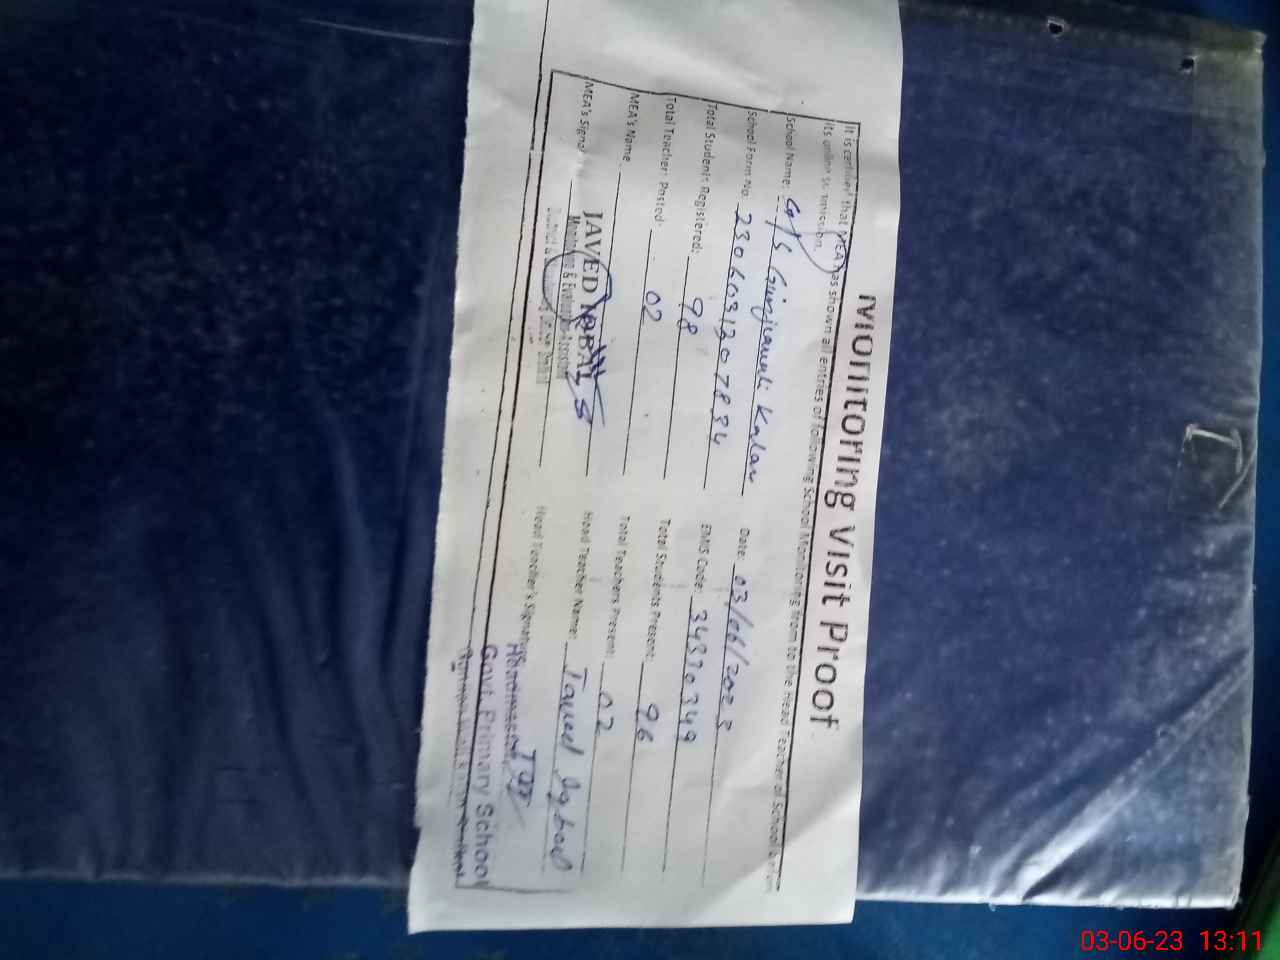 Monitoring Visit Proof
It is certified that MEA has shown all entries of following School Monitoring from to the Head Teacher of School
its online submission.
School Name: GPS Gunjianli Kalan Date: 03/06/2023
School Form No: 2306031307834 EMIS Code: 34330349
Total Students Registered: 98 Total Students Present: 96
Total Teacher Posted: 02 Total Teachers Present: 02
MEA's Name Head Teacher Name: Javed Iqbal
MEA's Signa Head Teacher's Signature
JAVED IQBAL
Monitoring & Evaluation Assistant
Govt Primary School
03-06-23 13:11